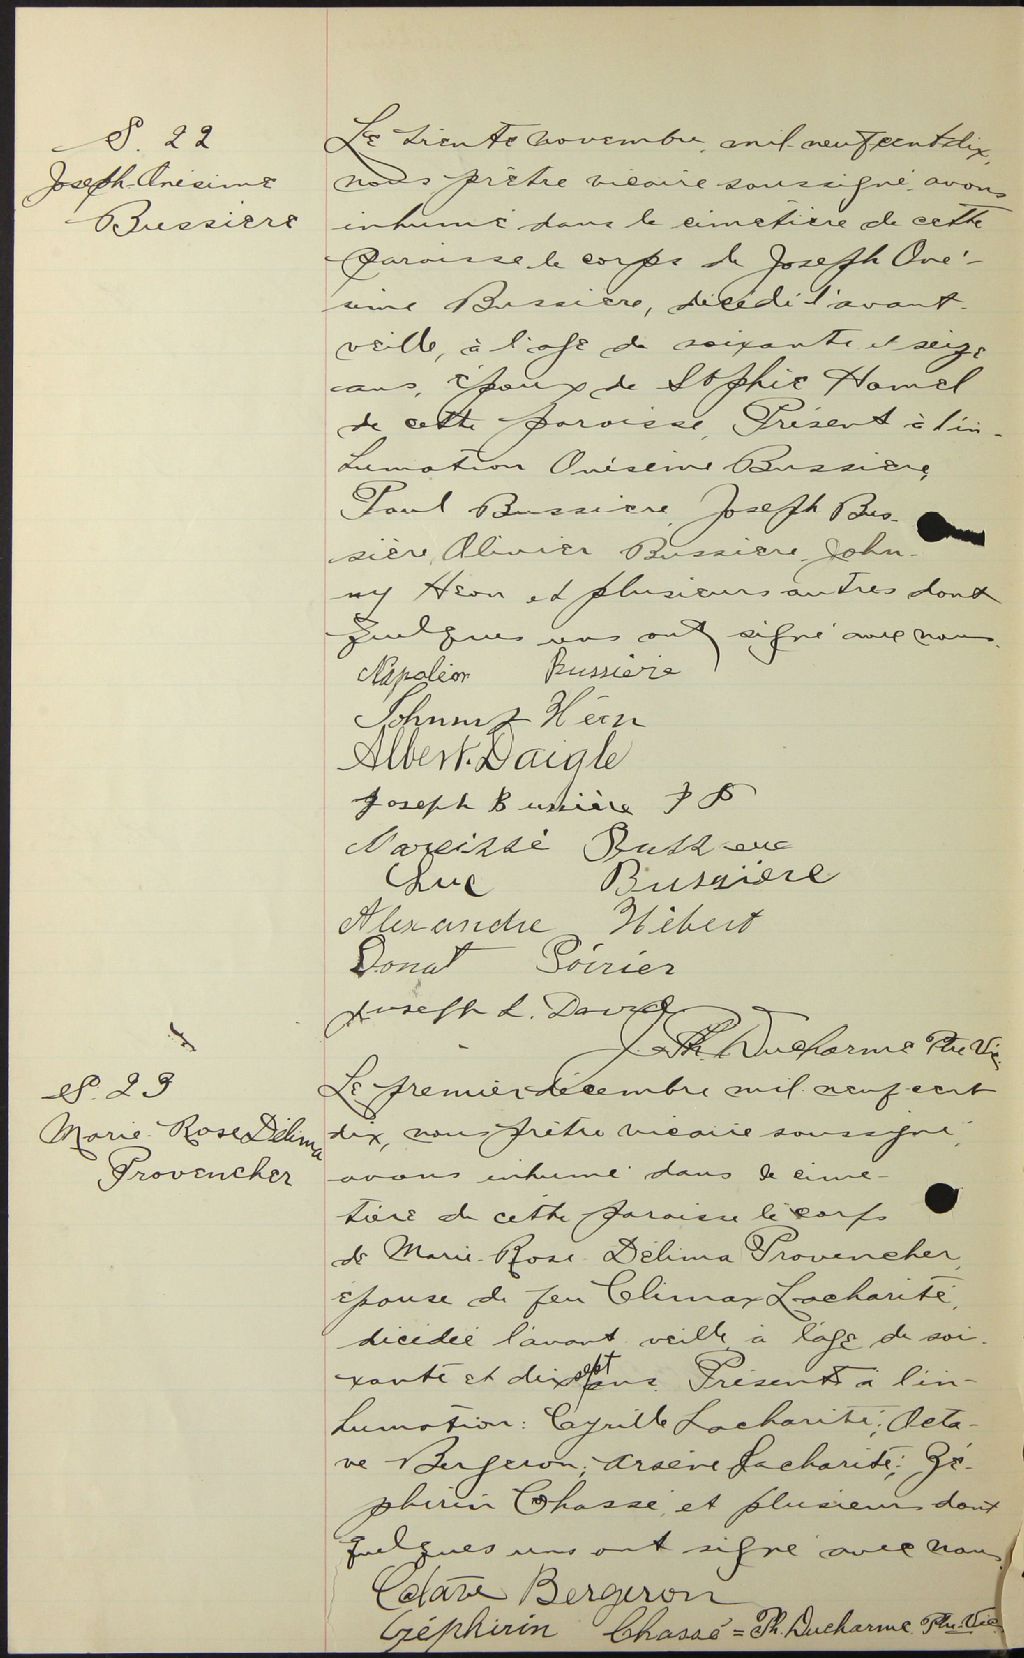 S. 22
Joseph-Onésime
Bussière
Le trente novembre, mil-neuf cent dix,
nous prêtre vicaire soussigné, avons
inhumé dans le cimetière de cette
paroisse le corps de Joseph Oné-
sime Bussière, décédé l'avant-
veille, à l'age de soixante et seize
ans, époux de Sophie Hamel
de cette paroisse. Présent à l'in-
humation Onésime Bussière,
Paul Bussière, Joseph Bus-
sière, Olivier Bussière, John-
ny Héon et plusieurs autres dont
quelques uns ont signé avec nous.
Napoléon Bussière
Johnny Héon
Albert Daigle
Joseph Bussière
Narcisse Bussière
Luc Bussière
Alexandre Hébert
Donat Poirier
Joseph L. David
J. Ph. Ducharme Ptre Vic.
S. 23
Marie Rose Délima
Provencher
Le premier décembre mil neuf cent
dix, nous prêtre vicaire soussigné,
avons inhumé dans le cime-
tière de cette paroisse le corps
de Marie-Rose Délima Provencher,
épouse de feu Climax Lacharité,
décédée l'avant veille, à l'age de soi-
xante et dix sept ans. Présents à l'in-
humation: Cyrille Lacharité; Octa-
ve Bergeron; Arsène Lacharité; Zé-
phirin Chassé, et plusieurs dont
quelques uns ont signé avec nous.
Octave Bergeron
Zéphirin Chassé = Ph. Ducharme Ptre. Vic.